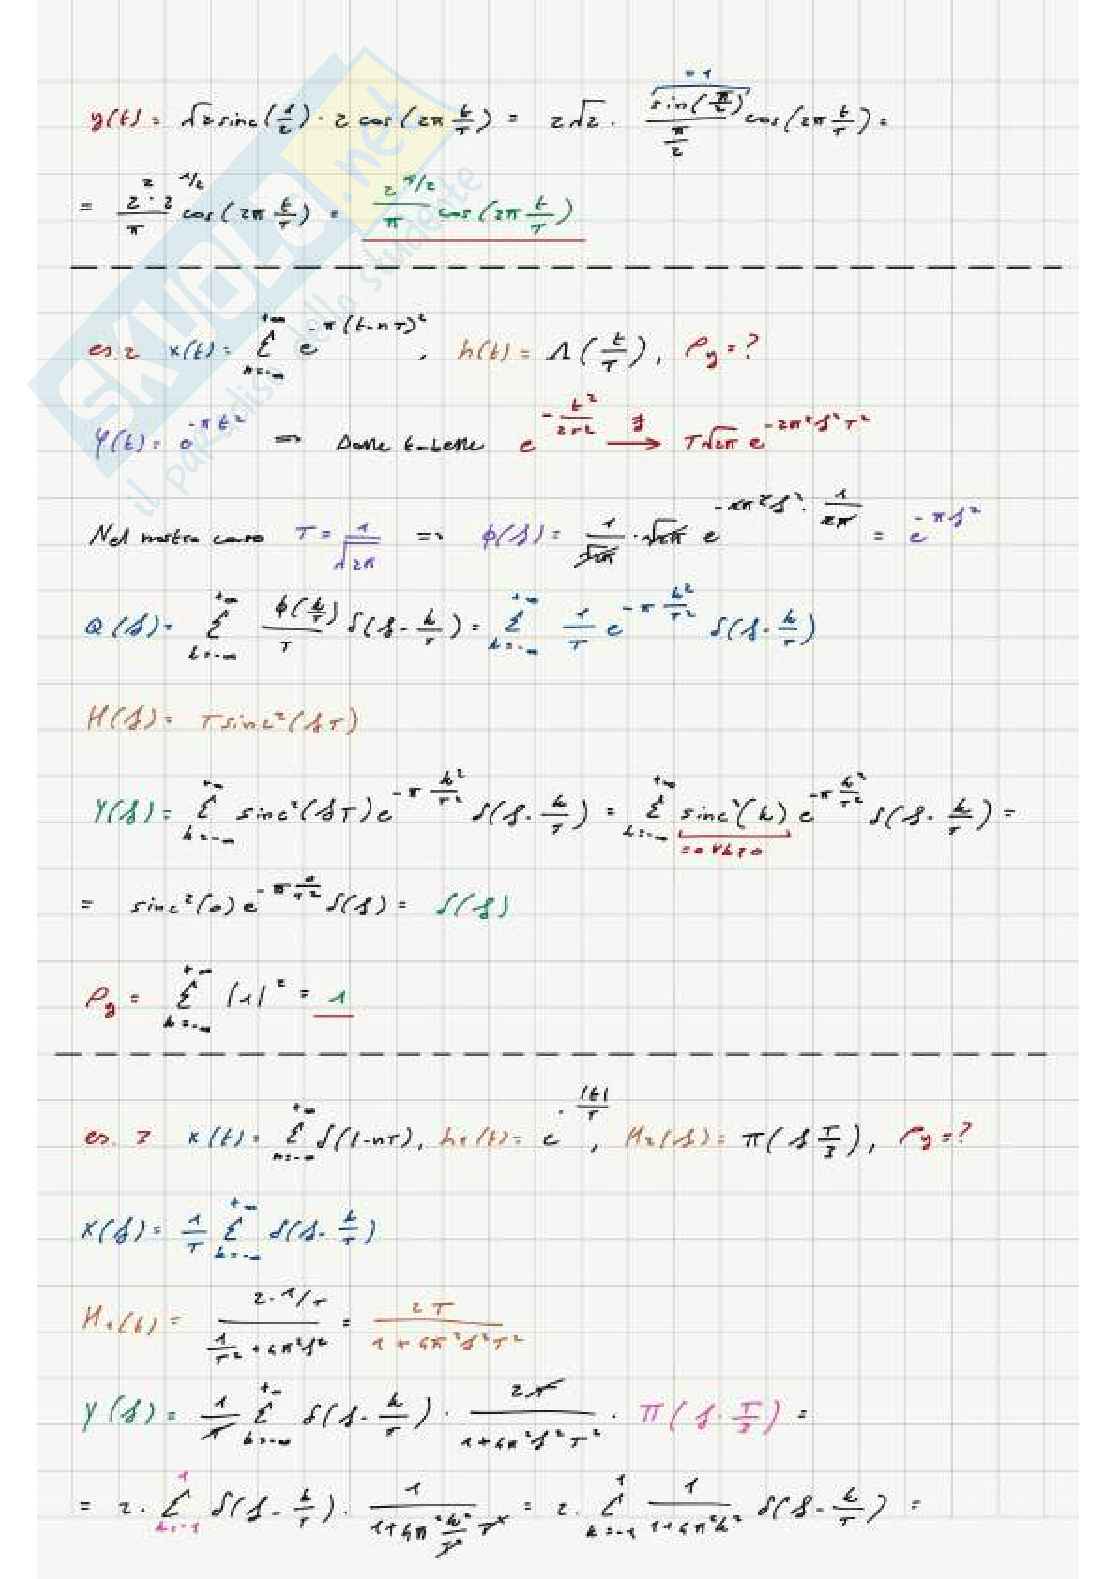 y(t) = √2 sinc(1/2) · 2 cos(2π t/T) = 2√2 · sin(π/2)/(π/2) cos(2π t/T) =
= 1
= 2·2^2 1/2 / π cos(2π t/T) = 2^{5/2}/π cos(2π t/T)
es. 2 x(t) = Σ_{n=-∞}^{+∞} e^{-π(t-nT)²}, h(t) = Λ(t/T), Py = ?
φ(t) = e^{-πt²} => Dalle tabelle e^{-t²/2T²} → T√2π e^{-2π²f²T²}
Nel nostro caso T = 1/√2π => ϕ(f) = 1/√2π · √2π e^{-2π²f² · 1/2π} = e^{-πf²}
Q(f) = Σ_{k=-∞}^{+∞} ϕ(k/T)/T δ(f - k/T) = Σ_{k=-∞}^{+∞} 1/T e^{-π k²/T²} δ(f - k/T)
H(f) = T sinc²(fT)
Y(f) = Σ_{k=-∞}^{+∞} sinc²(fT) e^{-π k²/T²} δ(f - k/T) = Σ_{k=-∞}^{+∞} sinc²(k) e^{-π k²/T²} δ(f - k/T) =
= 0 ∀k≠0
= sinc²(0) e^{-π 0/T²} δ(f) = δ(f)
Py = Σ_{k=-∞}^{+∞} |1|² = 1
es. 3 x(t) = Σ_{n=-∞}^{+∞} δ(t-nT), h₁(t) = e^{-|t|/T}, H₂(f) = π(f T/3), Py = ?
X(f) = 1/T Σ_{k=-∞}^{+∞} δ(f - k/T)
H₁(f) = 2·1/T / (1/T² + 4π²f²) = 2T / (1 + 4π²f²T²)
Y(f) = 1/T Σ_{k=-∞}^{+∞} δ(f - k/T) · 2T / (1 + 4π²f²T²) · π(f · T/3) =
= 2 · Σ_{k=-1}^{1} δ(f - k/T) · 1 / (1 + 4π² k²/T² T²) = 2 · Σ_{k=-1}^{1} 1 / (1 + 4π²k²) δ(f - k/T) =
SKUOLA.net
il paradiso dello studente